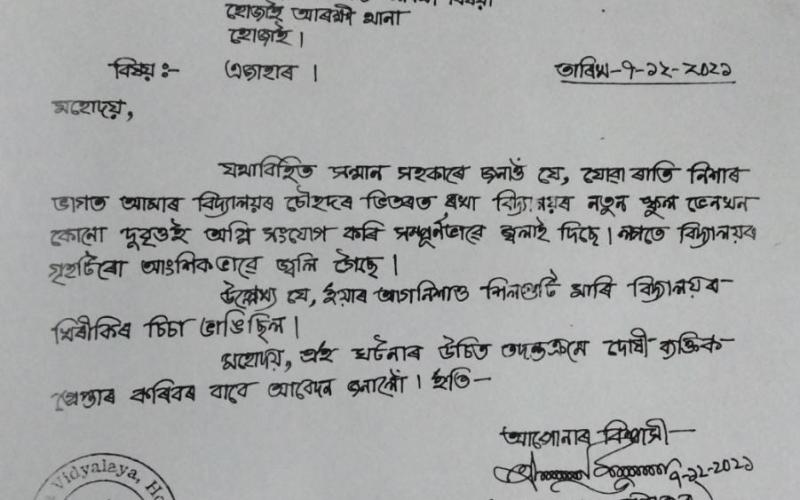 হোজাই আৰক্ষী থানা
হোজাই।
বিষয় :- এজাহাৰ। তাৰিখ-৭-১২-২০২১
মহোদয়,
যথাবিহিত সন্মান সহকাৰে জনাওঁ যে, যোৱা ৰাতি নিশাৰ
ভাগত আমাৰ বিদ্যালয়ৰ চৌহদৰ ভিতৰত ৰখা বিদ্যালয়ৰ নতুন স্কুল ভেনখন
কোনো দুৰ্বৃত্তই অগ্নি সংযোগ কৰি সম্পূৰ্নভাৱে জ্বলাই দিছে। লগতে বিদ্যালয়ৰ
গৃহটিৰো আংশিকভাৱে জ্বলি গৈছে।
উল্লেখ্য যে, ইয়াৰ আগনিশাও শিলগুটি মাৰি বিদ্যালয়ৰ-
খিৰীকিৰ চিচা ভাঙিছিল।
মহোদয়, এই ঘটনাৰ উচিত তদন্তক্ৰমে দোষী ব্যক্তিক
গ্ৰেপ্তাৰ কৰিবৰ বাবে আবেদন জনালোঁ। ইতি-
আপোনাৰ বিশ্বাসী-
৭-১২-২০২১
Vidyalaya, Ho